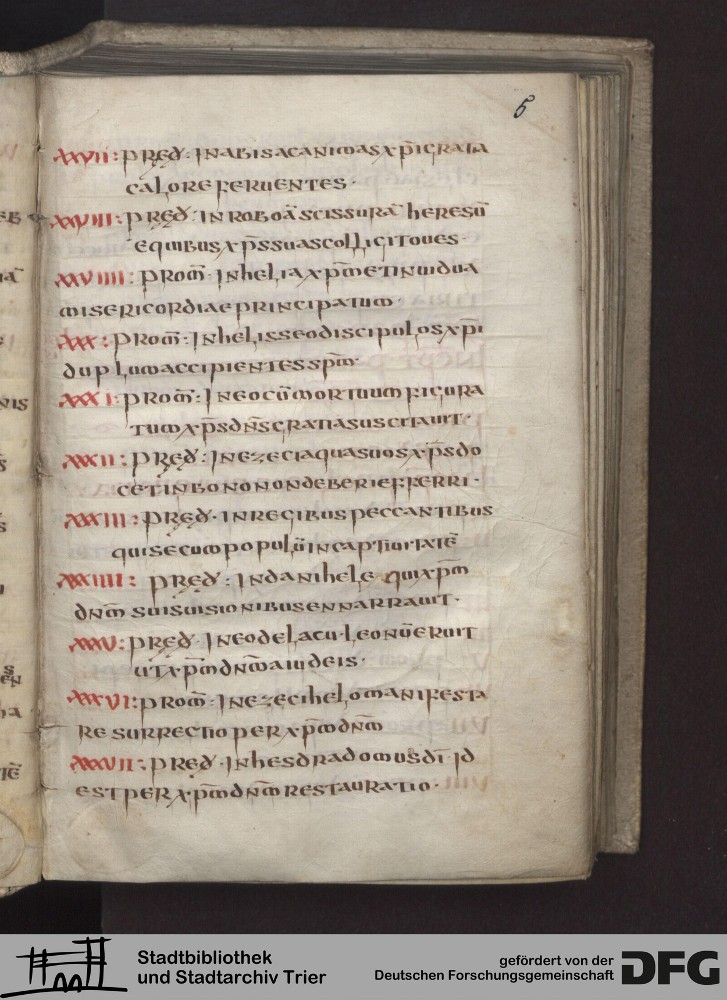 5
XXVII: PRĘD: INABISACANIMASXPIGRATIA
CALOREFERUENTES·
XXVIII: PRĘD: INROBOĀSCISSURĀHERESŪ
EQUIBUSXPSSUASCOLLIGITOUES·
XXVIIII: PROM̄· INHELIAXPM̄ETINUIDUA
MISERICORDIAEPRINCIPATUM·
XXX: PROM̄· INHELISSEODISCIPULOSXPI
DUPLUMACCIPIENTESSPM̄·
XXXI: PROM̄: INEOCŪMORTUUMFIGURA
TUMXPSDN̄SGRATIASUSCITAUIT·
XXXII: PRĘD: INEZECIAQUASUOSXPSDO
CETINBONONONDEBERIEFFERRI·
XXXIII: PRĘD· INREGIBUSPECCANTIBUS
QUISECUMPOPULŪINCAPTIUITATĒ
XXXIIII: PRĘD: INDANIHELE QUIXPM̄
DNM̄ SUISUISIONIBUSENNARRAUIT·
XXXV: PRĘD· INEODELACU·LEONŪERUIT
UTXPM̄DNM̄AIUDEIS·
XXXVI: PROM̄· INEZECIHELOMANIFESTA
RESURRECTIOPERXPM̄DNM̄
XXXVII: PRĘD· INHESDRADOMUSDI ID
ESTPERXPM̄DNM̄RESTAURATIO·
Stadtbibliothek
und Stadtarchiv Trier
gefördert von der
Deutschen Forschungsgemeinschaft
DFG